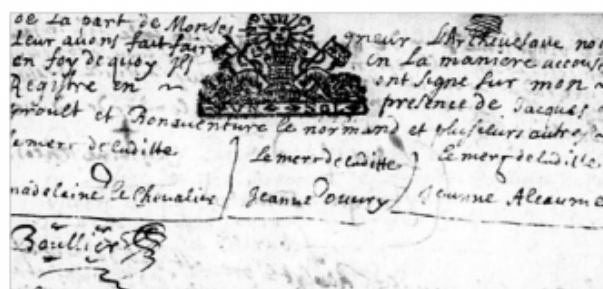 de La part de Monsei grieur L'Archevesque no
Leur avons fait faire en La maniere accous
en foy de quoy ils ont signe sur mon
Registre en presence de Jacques
proult et Bonaventure le normand et plusieurs autres
Le merc de laditte Le merc de laditte Le merc de laditte
madelaine Le Chevalier Jeanne ouvry Jeanne Aleaume
Boullier